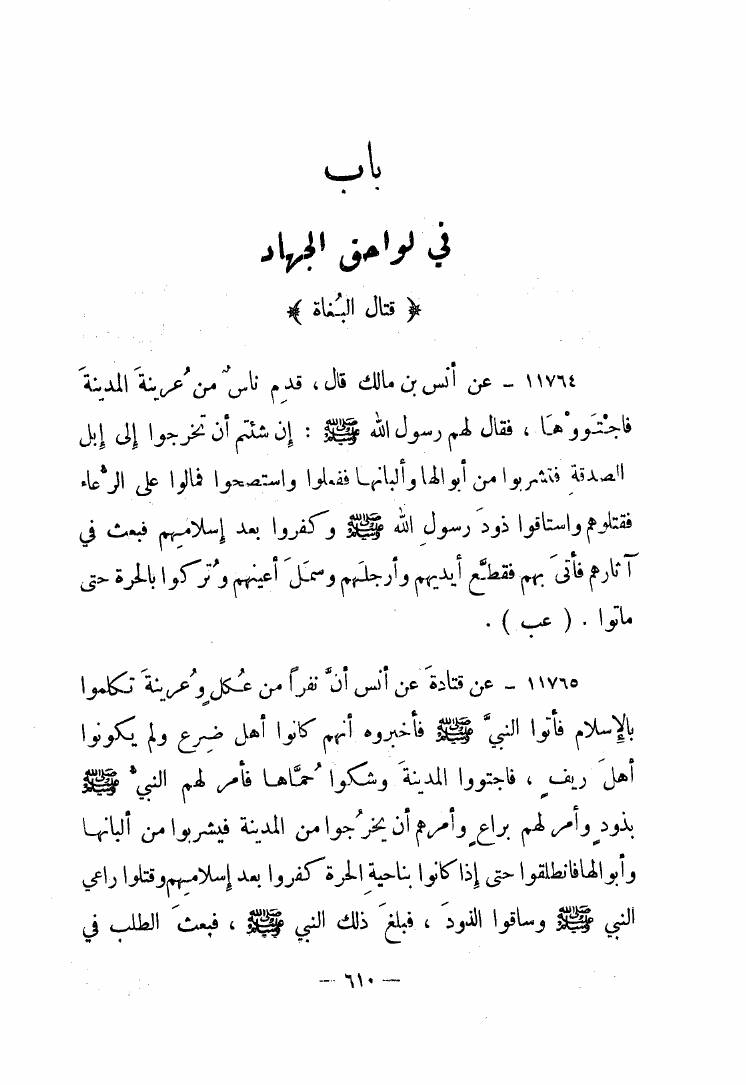 باب
في لواحق الجهاد
﴿ قتال البُغاة ﴾
١١٧٦٤ ـ عن أنس بن مالك قال ، قدِم ناسٌ من عُرينةَ المدينةَ
فاجْتَووْهَا ، فقال لهم رسول الله ﷺ : إن شئتم أن تخرجوا إلى إبل
الصدقةِ فتشربوا من أبوالها وألبانها ففعلوا واستصحوا فمالوا على الرُّعاء
فقتلوهم واستاقوا ذودَ رسولِ الله ﷺ وكفروا بعد إسلامهم فبعث في
آثارهم فأتىَ بهم فقطَّع أيديهم وأرجلَهم وسمَلَ أعينهم وتُركوا بالحرة حتى
ماتوا . ( عب ) .
١١٧٦٥ ـ عن قتادةَ عن أنس أنَّ نفراً من عُكلٍ وعُرينةَ تكلموا
بالإسلام فأتوا النبيَّ ﷺ فأخبروه أنهم كانوا أهل ضِرع ولم يكونوا
أهلَ ريفٍ ، فاجتووا المدينةَ وشكوا حُمَّاها فأمر لهم النبيُّ ﷺ
بذودٍ وأمر لهم براعٍ وأمرهم أن يخرُجوا من المدينة فيشربوا من ألبانها
وأبوالها فانطلقوا حتى إذا كانوا بناحيةِ الحرة كفروا بعد إسلامهم وقتلوا راعي
النبي ﷺ وساقوا الذودَ ، فبلغَ ذلك النبي ﷺ ، فبعثَ الطلب في
— ٦١٠ —